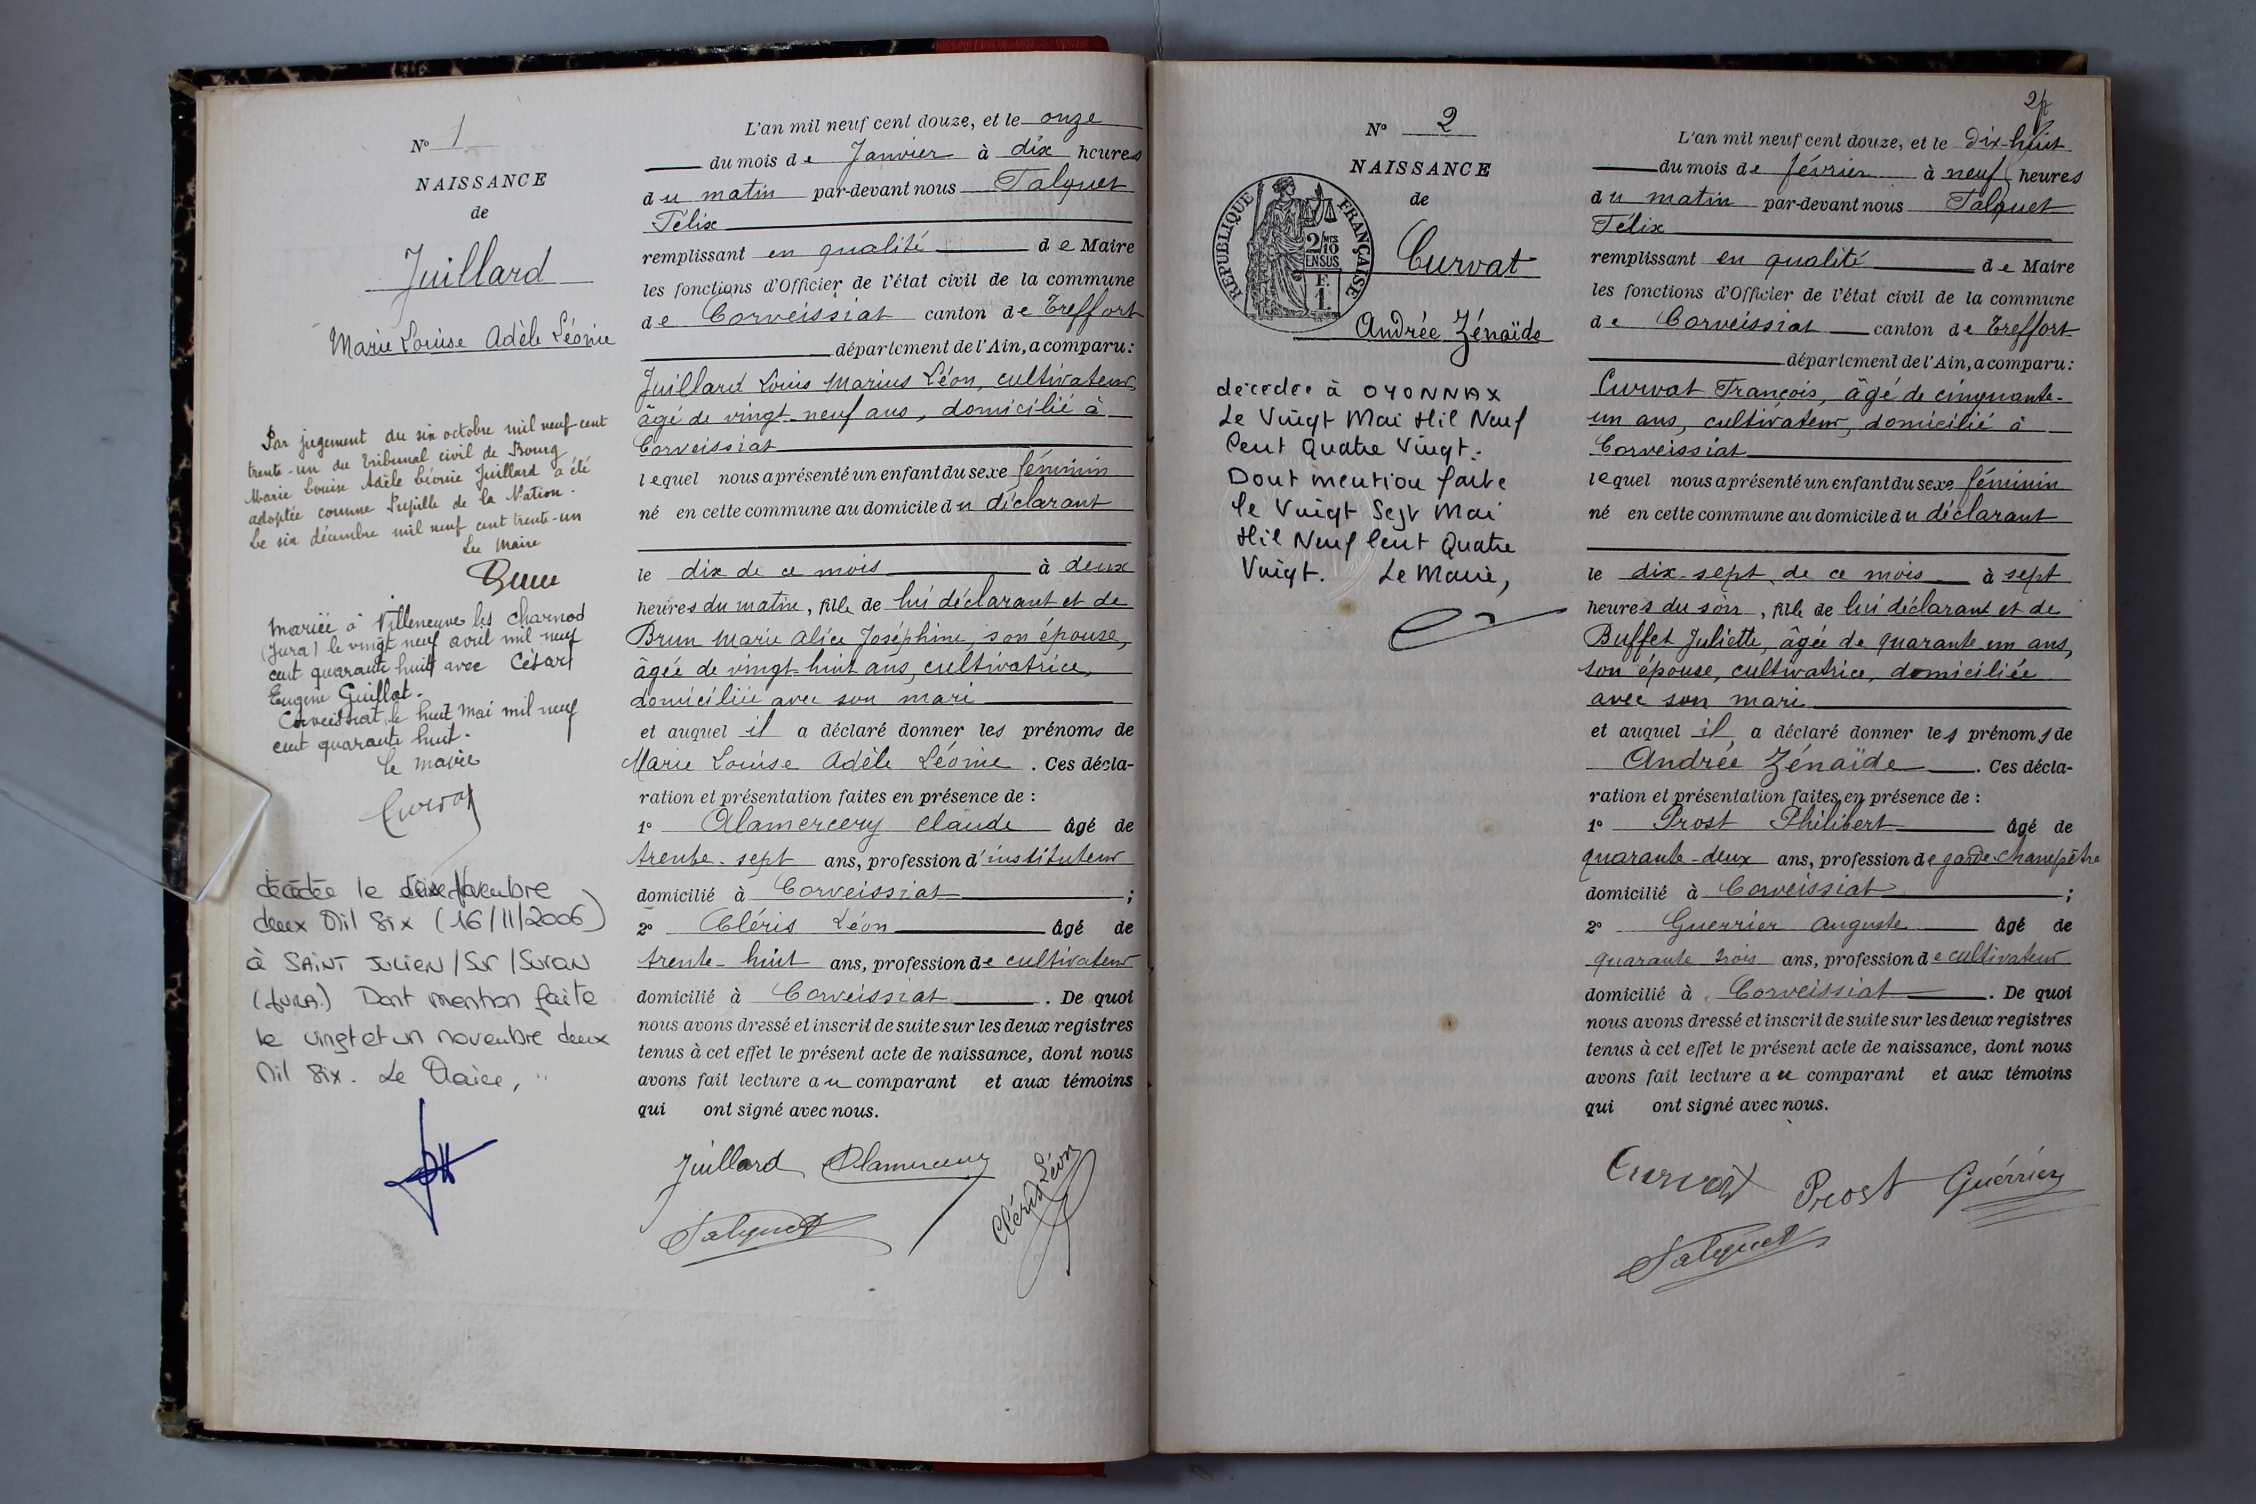 N° 1
NAISSANCE
de
Juillard
Marie Louise Adèle Léonie
Par jugement du six octobre mil neuf cent
trente-un du Tribunal civil de Bourg
Marie Louise Adèle Léonie Juillard a été
adoptée comme Pupille de la Nation.
Le six décembre mil neuf cent trente-un
Le Maire
Mariée à Villeneuve les Charnod
(Jura) le vingt neuf avril mil neuf
cent quarante huit avec César
Eugène Guillot.
Corveissiat, le huit Mai mil neuf
cent quarante huit.
le Maire
Curvat
décédée le Novembre
deux Mil Six (16/11/2006)
à SAINT JULIEN/SUR/SURAN
(JURA.) Dont mention faite
le vingt et un novembre deux
Mil Six. Le Maire,
L'an mil neuf cent douze, et le onze
du mois de Janvier à dix heures
du matin par-devant nous Talquet
Félix
remplissant en qualité de Maire
les fonctions d'Officier de l'état civil de la commune
de Corveissiat canton de Treffort
département de l'Ain, a comparu :
Juillard Louis Marius Léon, cultivateur,
âgé de vingt-neuf ans, domicilié à
Corveissiat
lequel nous a présenté un enfant du sexe féminin
né en cette commune au domicile du déclarant
le dix de ce mois à deux
heures du matin, fille de lui déclarant et de
Brun Marie Alice Joséphine, son épouse,
âgée de vingt-huit ans, cultivatrice,
domiciliée avec son mari
et auquel il a déclaré donner les prénoms de
Marie Louise Adèle Léonie. Ces décla-
ration et présentation faites en présence de :
1° Alamercery Claude âgé de
trente-sept ans, profession d'instituteur
domicilié à Corveissiat ;
2° Cléris Léon âgé de
trente-huit ans, profession de cultivateur
domicilié à Corveissiat. De quoi
nous avons dressé et inscrit de suite sur les deux registres
tenus à cet effet le présent acte de naissance, dont nous
avons fait lecture au comparant et aux témoins
qui ont signé avec nous.
Juillard Alamercery Cléris Léon
Talquet
2
N° 2
NAISSANCE
de
RÉPUBLIQUE FRANÇAISE
2/10 EN SUS
1 F.
Curvat
Andrée Zénaïde
décédée à OYONNAX
Le Vingt Mai Mil Neuf
Cent Quatre Vingt.
Dont mention faite
le Vingt Sept Mai
Mil Neuf Cent Quatre
Vingt. Le Maire,
L'an mil neuf cent douze, et le dix-huit
du mois de février à neuf heures
du matin par-devant nous Talquet
Félix
remplissant en qualité de Maire
les fonctions d'Officier de l'état civil de la commune
de Corveissiat canton de Treffort
département de l'Ain, a comparu :
Curvat François, âgé de cinquante-
un ans, cultivateur, domicilié à
Corveissiat
lequel nous a présenté un enfant du sexe féminin
né en cette commune au domicile du déclarant
le dix-sept de ce mois à sept
heures du soir, fille de lui déclarant et de
Buffet Juliette, âgée de quarante-un ans,
son épouse, cultivatrice, domiciliée
avec son mari
et auquel il a déclaré donner les prénoms de
Andrée Zénaïde. Ces décla-
ration et présentation faites en présence de :
1° Prost Philibert âgé de
quarante-deux ans, profession de garde-champêtre
domicilié à Corveissiat ;
2° Guerrier Auguste âgé de
quarante trois ans, profession de cultivateur
domicilié à Corveissiat. De quoi
nous avons dressé et inscrit de suite sur les deux registres
tenus à cet effet le présent acte de naissance, dont nous
avons fait lecture au comparant et aux témoins
qui ont signé avec nous.
Curvat Prost Guérrier
Talquet